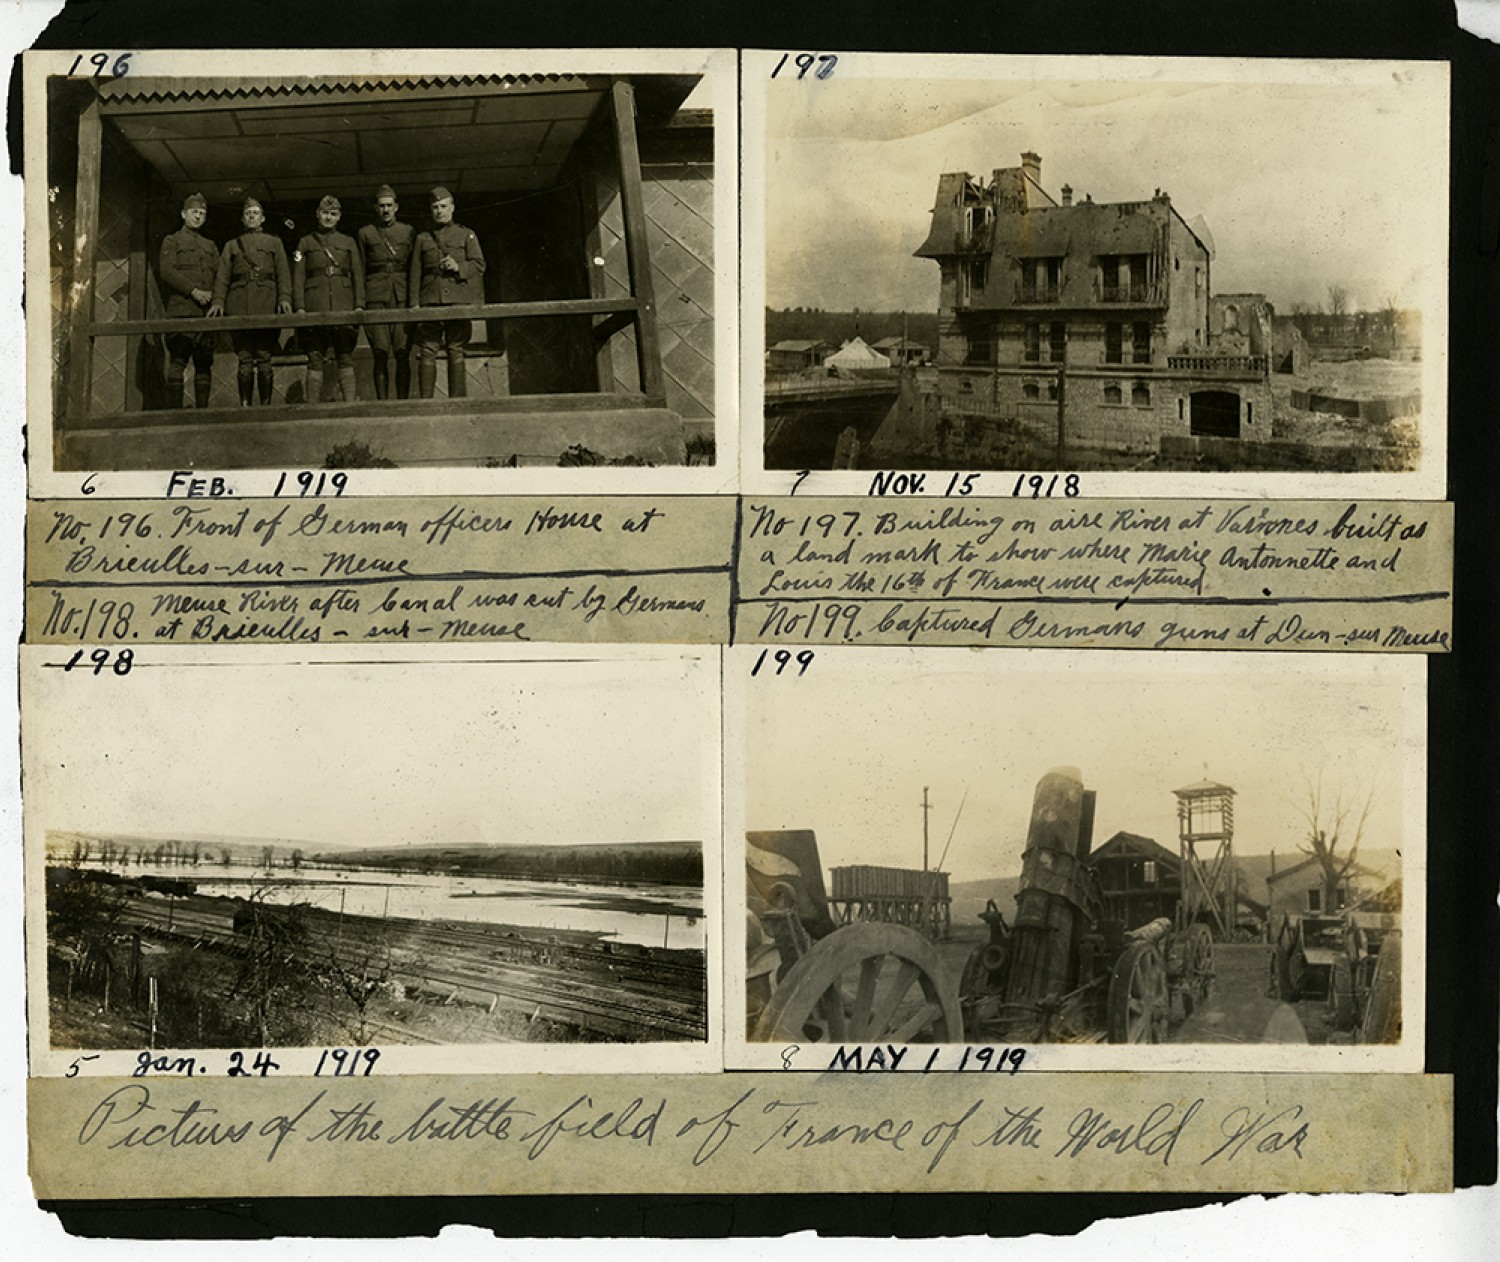 196
197
6 FEB. 1919
7 NOV. 15 1918
No. 196. Front of German officers House at
Brieulles-sur-Meuse
No 197. Building on aire River at Varennes built as
a land mark to show where Marie Antonnette and
Louis the 16th of France were captured
No. 198. Meuse River after Canal was cut by Germans
at Brieulles-sur-Meuse
No 199. Captured Germans guns at Dun-sur Meuse
198
199
5 Jan. 24 1919
8 MAY 1 1919
Pictures of the battle field of France of the World War